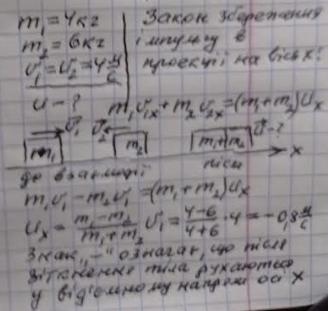 m₁ = 4кг
m₂ = 6кг
v₁ = v₂ = 4 м/с
u - ?
Закон збереження
імпульсу в
проекції на вісь х:
m₁v₁ₓ + m₂v₂ₓ = (m₁+m₂)uₓ
v₁ v₂ u - ?
m₁ m₂ m₁+m₂ x
до взаємодії після
m₁v₁ - m₂v₁ = (m₁+m₂)uₓ
uₓ = (m₁-m₂)/(m₁+m₂) v₁ = (4-6)/(4+6) · 4 = -0,8 м/с
Знак „-" означає, що після
зіткнення тіла рухаються
у від'ємному напрямі осі х